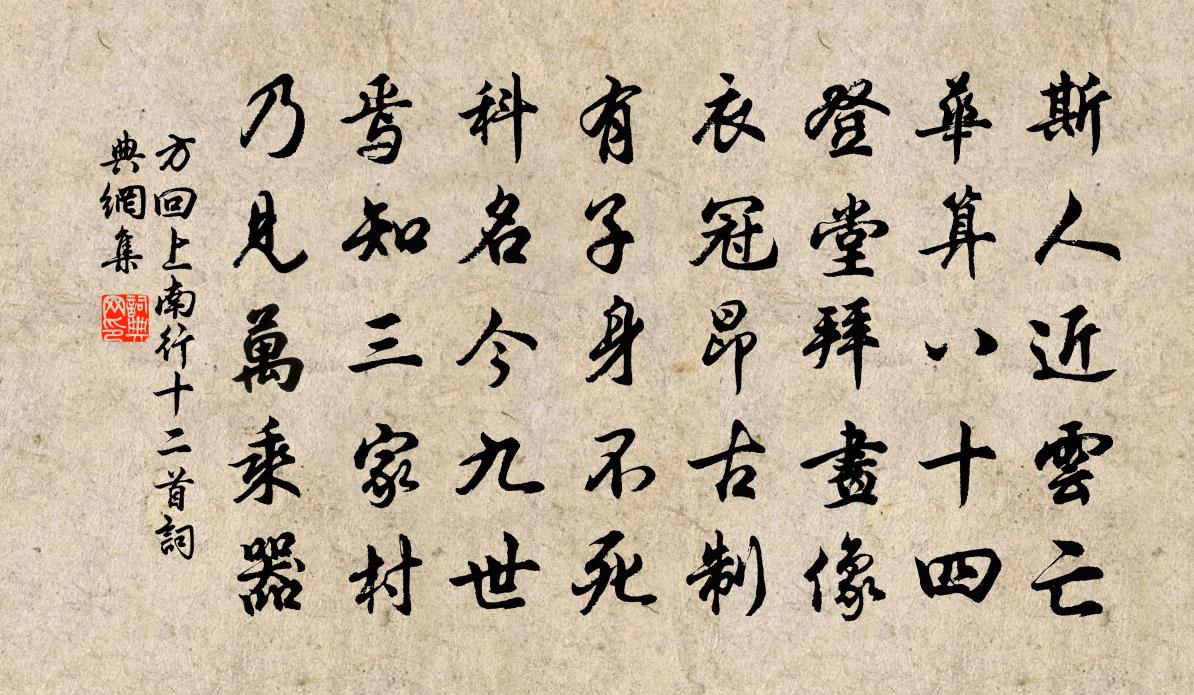 斯人近雲亡
華算八十四
登堂拜畫像
衣冠昂古制
有子身不死
科名今九世
焉知三家村
乃見萬乘器
方回上南行十二首詞
典網集
詞典網印